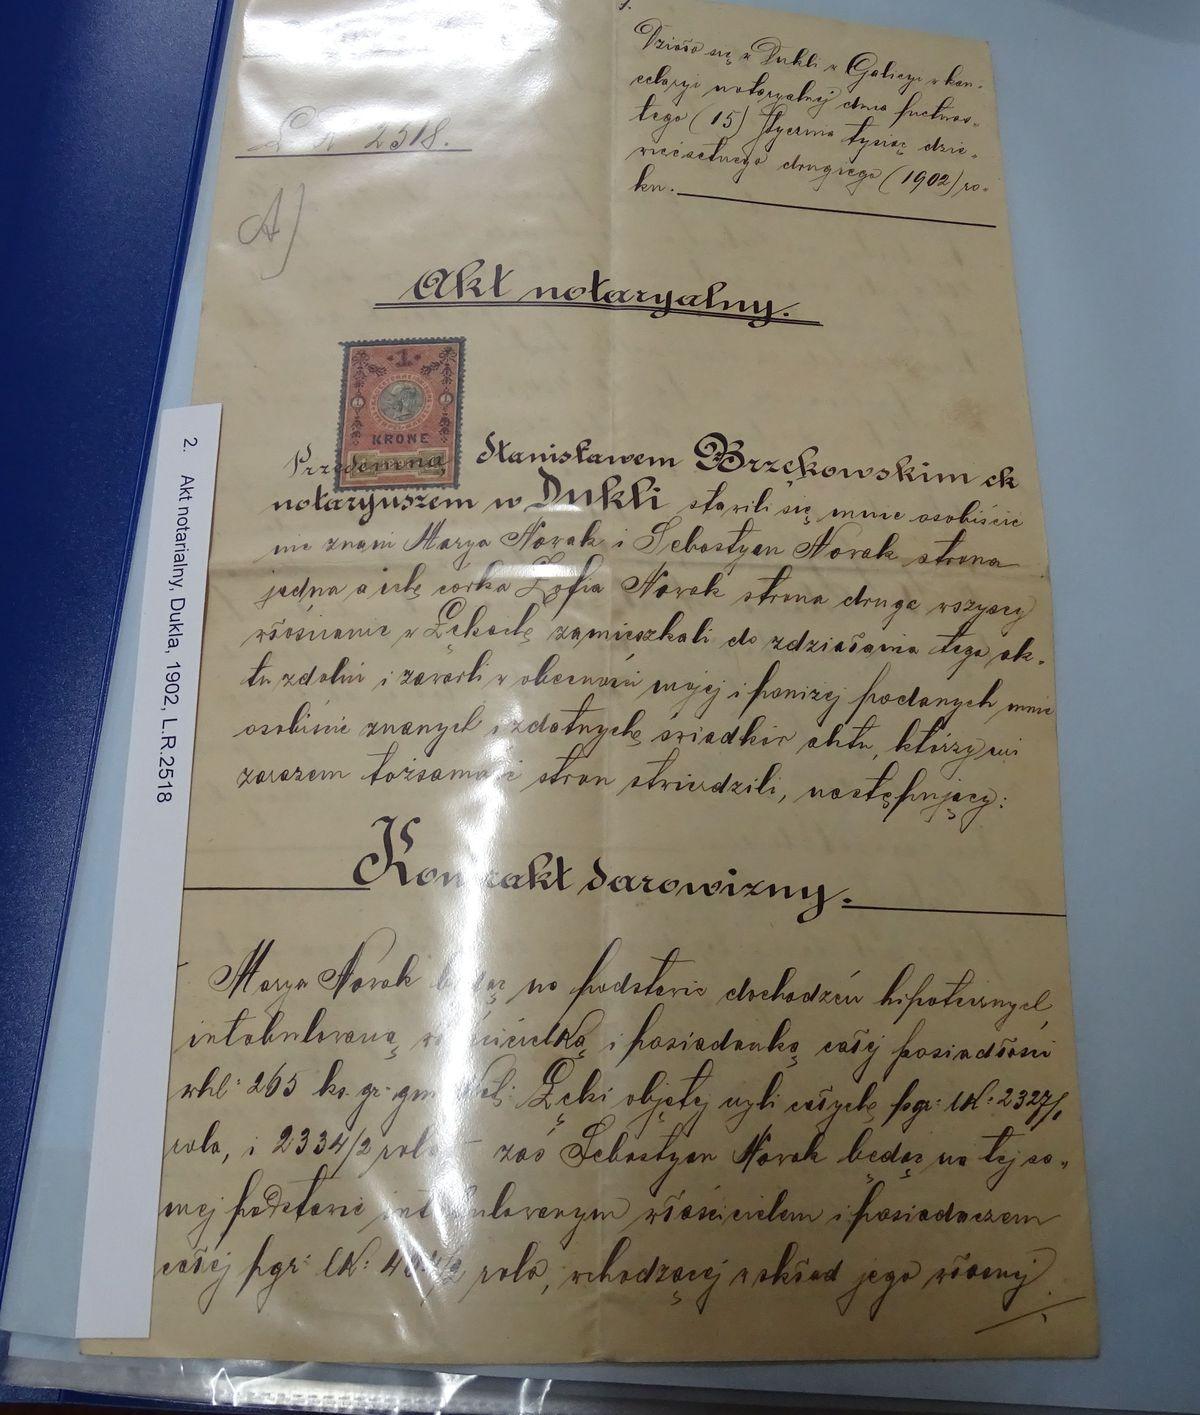 1.
Działo się w Dukli w Galicyi w kan-
celaryi notaryalnej dnia piętnas-
tego (15) stycznia tysiąc dzie-
więćsetnego drugiego (1902) ro-
ku.
L R 2518.
A)
Akt notaryalny.
1
KRONE
Przedemną Stanisławem Brzękowskim ck
notaryuszem w Dukli stawili się mnie osobiście
nie znani Marya Nowak i Sebastyan Nowak strona
jedna a ich córka Zofia Nowak strona druga wszyscy
włościanie w Łękach zamieszkali do zdziałania tego ak-
tu zdolni i zawarli w obecności mojej i poniżej podanych mnie
osobiście znanych i zdatnych świadków aktu, którzy mi
zarazem tożsamości stron stwierdzili, następujący:
Kontrakt darowizny.
Marya Nowak będąc na podstawie dochodzeń hipotecznych
intabulowaną właścicielką i posiadanką całej posiadłości
whl: 265 ks. gr. gm. Łęki objętej czyli całych pgr: lk: 2327/1
rola, i 2334/2 rola – zaś Sebastyan Nowak będąc na tej sa-
mej podstawie intabulowanym właścicielem i posiadaczem
całej pgr: lk: rola, wchodzącej w skład jego własnej
2. Akt notarialny, Dukla, 1902, L.R.2518